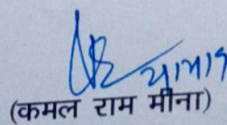 (कमल राम मीना)